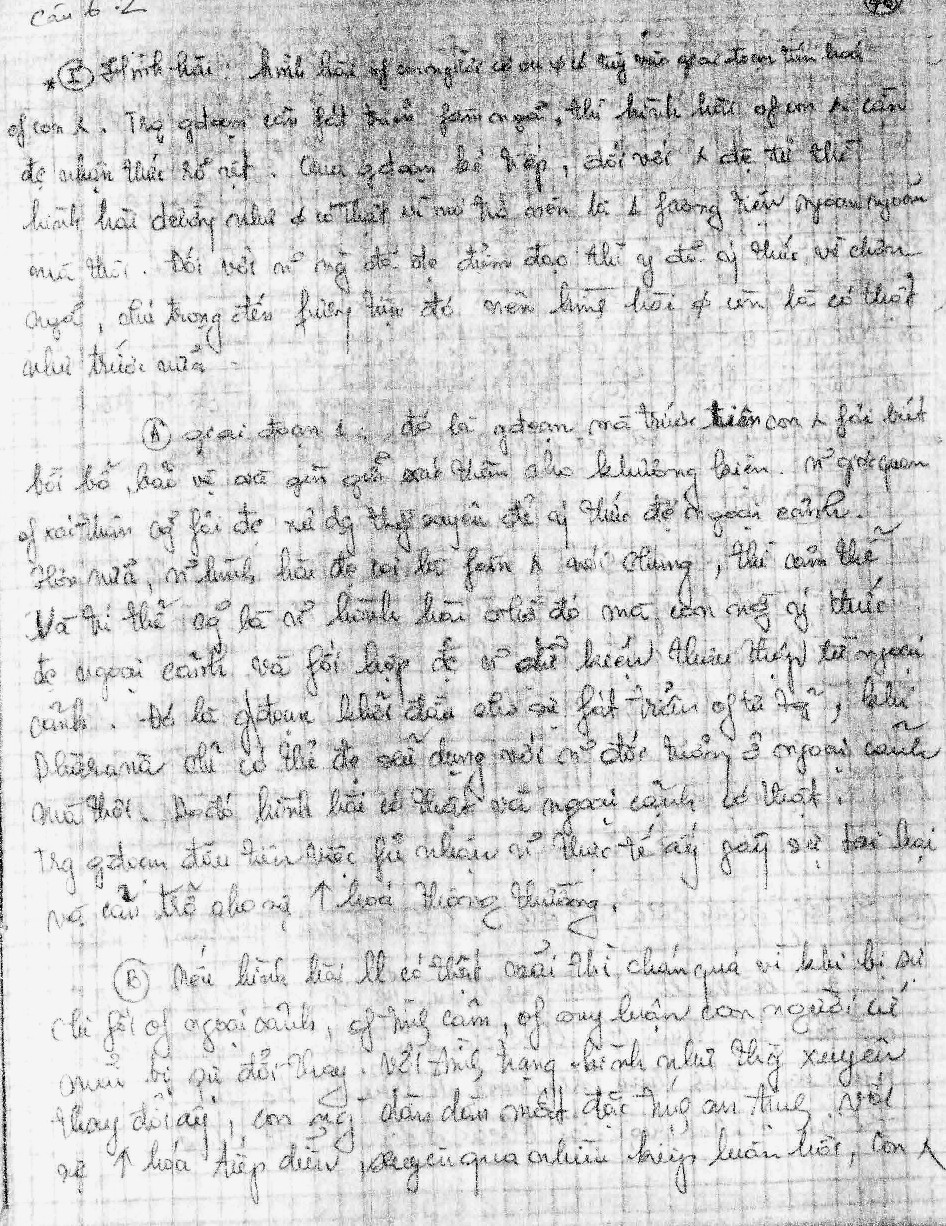 Câu 6.2
* I Hình hài : hình hài of con người có or ko có tuỳ vào giai đoạn tiến hoá
of con λ. Trg gđoạn cần fát triển fàm ngã, thì hình hài of con λ cần
đc nhận thức rõ rệt. Qua gđoạn kế tiếp, đối với λ đệ tử thì
hình hài dường như ko có thật vì nó trở nên là 1 fương tiện ngoan ngoãn
mà thôi. Đối với n~ ng đã đc điểm đạo thì y đã ý thức về chân
ngã, chú trọng đến fương tiện đó nên hình hài ko còn là có thật
như trước nữa
A giai đoạn 1 : đó là gđoạn mà trước tiên con λ fải biết
bồi bổ, bảo vệ và gìn giữ xác thân cho khương kiện. n~ gquan
of xác thân cg~ fải đc sử dg thg xuyên để ý thức đc ngoại cảnh.
Hơn nữa, n~ hình hài đc coi là fàm λ với chúng, thì cảm thể
Và trí thể cg~ là n~ hình hài nhờ đó mà con ng ý thức
đc ngoại cảnh và fối hợp đc n~ dữ kiện thâu thập từ ngoại
cảnh. Đó là gđoạn khởi đầu cho sự fát triển of tự ngã, khi
Dhāranā chỉ có thể đc sử dụng với n~ đối tượng ở ngoại cảnh
mà thôi. Do đó hình hài có thật và ngoại cảnh có thật.
Trg gđoạn đầu tiên việc fủ nhận n~ thực tế ấy gây sự tai hại
và cản trở cho sự ↑ hoá thông thường.
B Nếu hình hài ll có thật mãi thì chán quá vì khi bị sự
chi fối of ngoại cảnh, of tình cảm, of suy luận con người cứ
mãi bị sự đổi thay. Với tình trạng hình như thg xuyên
thay đổi ấy, con ng dần dần mất đặc tính an tĩnh. Với
sự ↑ hóa tiếp diễn, xuyên qua nhiều kiếp luân hồi, con λ